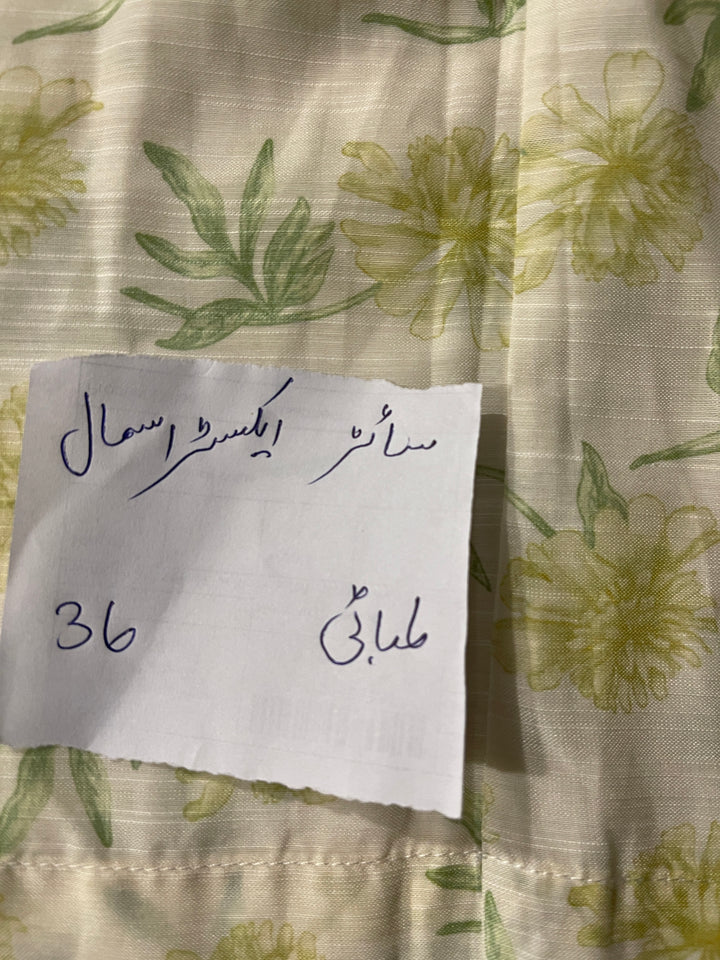 سائز ایکسٹرا سمال
لمبائی 36